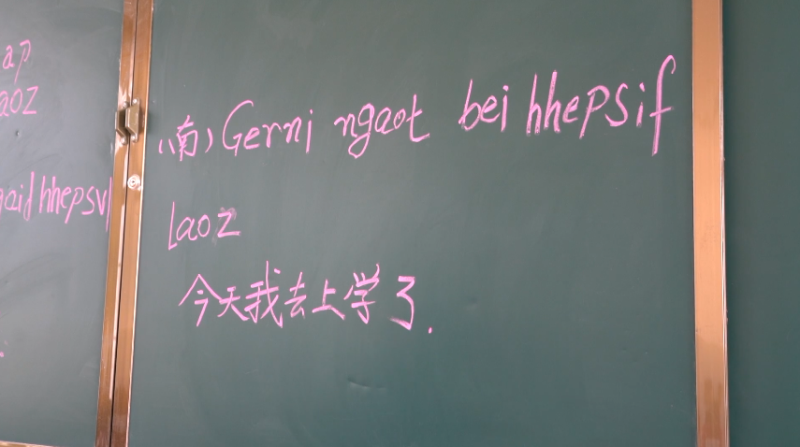 ap
aoz
gaid hhepsv
(南) Gerni ngaot bei hhepsif
laoz
今天我去上学了.